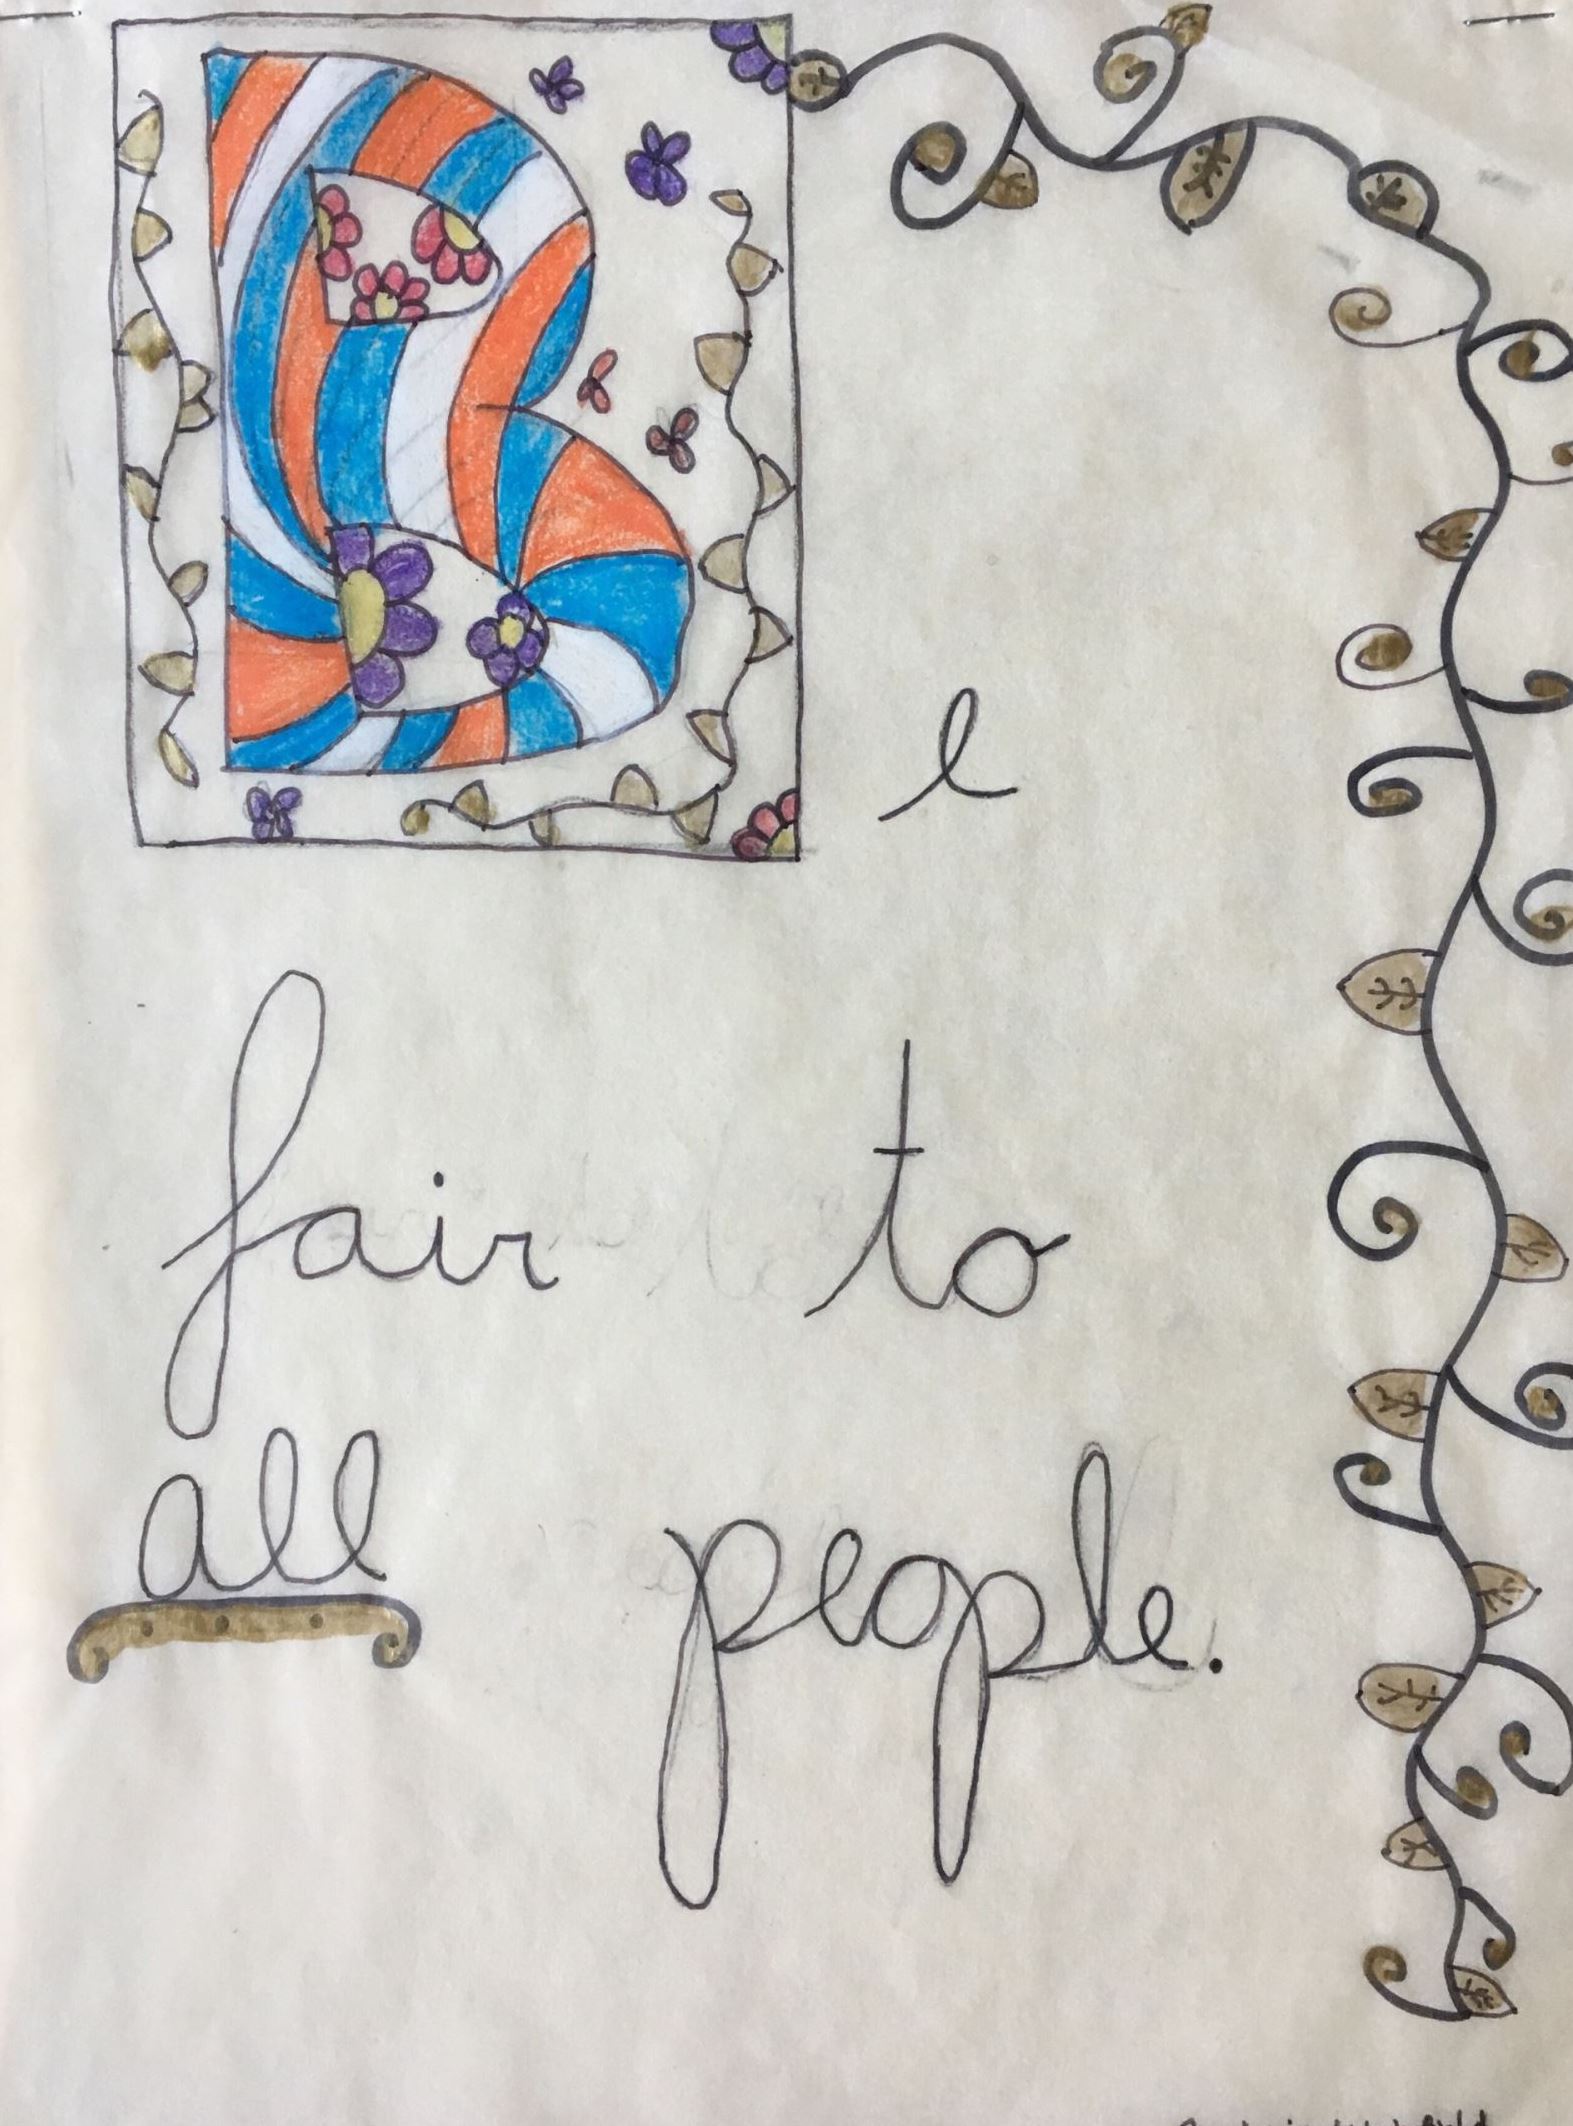 Be
fair to
all people.